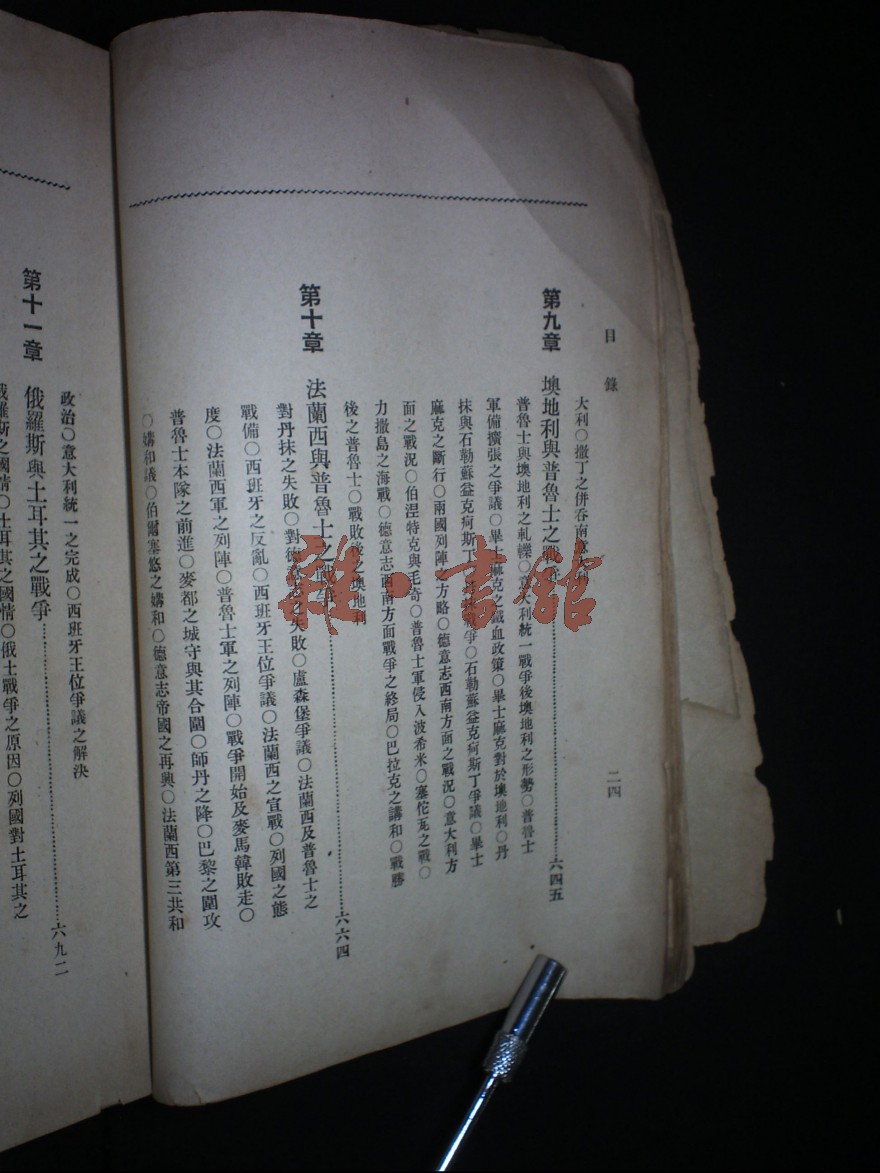 目錄
二四
大利○撒丁之併吞南意大利
第九章 墺地利與普魯士之戰爭………六四五
普魯士與墺地利之軋轢○意大利統一戰爭後墺地利之形勢○普魯士
軍備擴張之爭議○畢士麻克之鐵血政策○畢士麻克對於墺地利○丹
抹與石勒蘇益克疴斯丁○石勒蘇益克疴斯丁爭議○畢士
麻克之斷行○兩國列陣之方略○德意志西南方面之戰況○意大利方
面之戰況○伯涅特克與毛奇○普魯士軍侵入波希米○塞陀瓦之戰○
力撒島之海戰○德意志西南方面戰爭之終局○巴拉克之講和○戰勝
後之普魯士○戰敗後之墺地利
第十章 法蘭西與普魯士之戰爭………六六四
對丹抹之失敗○對德意志之失敗○盧森堡爭議○法蘭西及普魯士之
戰備○西班牙之反亂○西班牙王位爭議○法蘭西之宣戰○列國之態
度○法蘭西軍之列陣○普魯士軍之列陣○戰爭開始及麥馬韓敗走○
普魯士本隊之前進○麥都之城守與其合圍○師丹之降○巴黎之圍攻
○媾和議○伯爾塞悠之媾和○德意志帝國之再興○法蘭西第三共和
政治○意大利統一之完成○西班牙王位爭議之解決
第十一章 俄羅斯與土耳其之戰爭………六九二
俄羅斯之國情○土耳其之國情○俄土戰爭之原因○列國對土耳其之
雜·書館